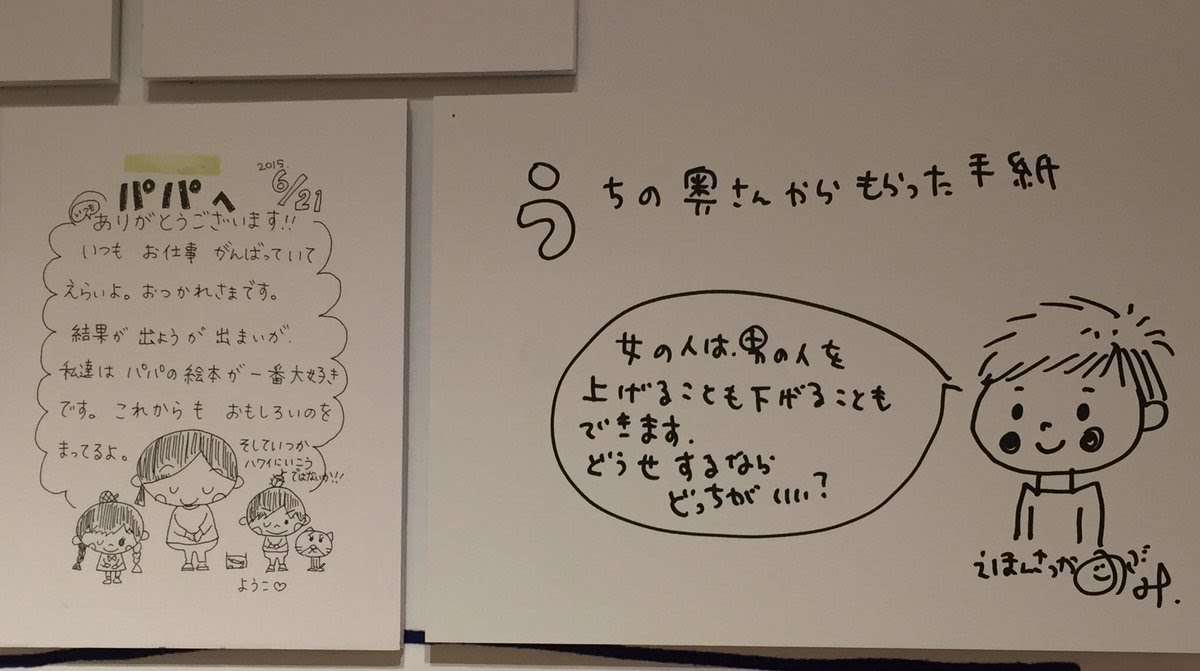 2015.
6/21
パパへ
いつも
ありがとうございます!!
いつも お仕事 がんばっていて
えらいよ。おつかれさまです。
結果が 出ようが 出まいが、
私達は パパの絵本が 一番大好き
です。これからも おもしろいのを
まってるよ。
そしていつか
ハワイにいこう
ではないか!!
ようこ♡
うちの奥さんからもらった手紙
女の人は、男の人を
上げることも下げることも
できます。
どうせするなら
どっちがいい?
えほんさっか